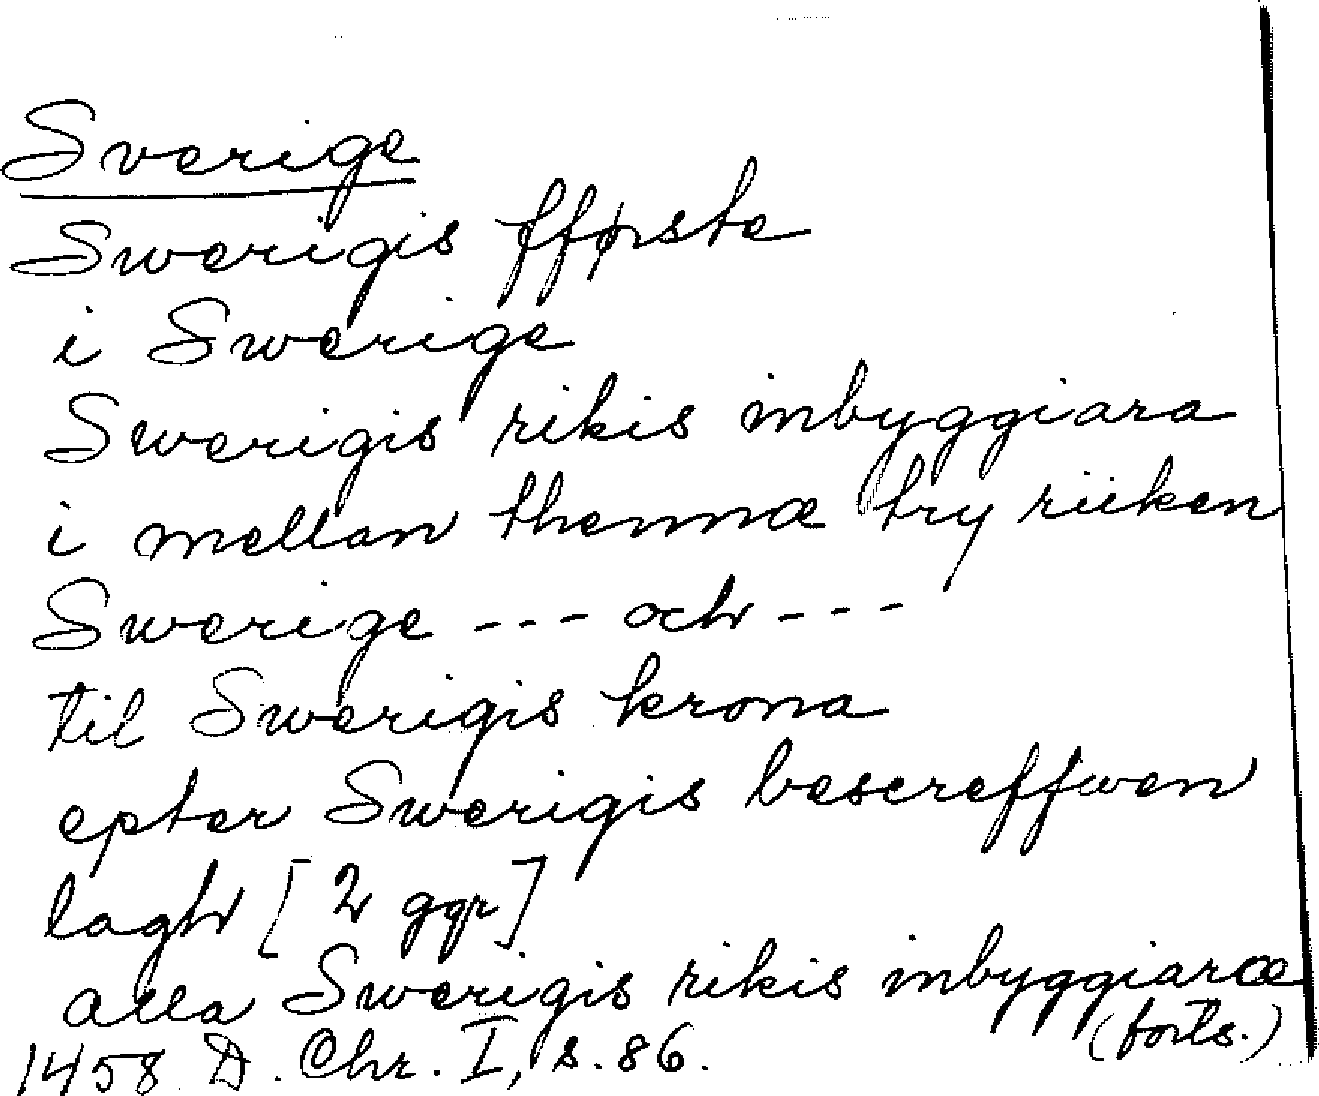 Sverige
Swerigis fførste
i Swerige
Swerigis rikis inbyggiara
i mellan thennæ try riiken
Swerige --- och ---
til Swerigis krona
epter Swerigis bescreffwen
lagh [2 ggr]
alla Swerigis rikis inbyggiaræ
(forts.)
1458 D. Chr. I, s. 86.